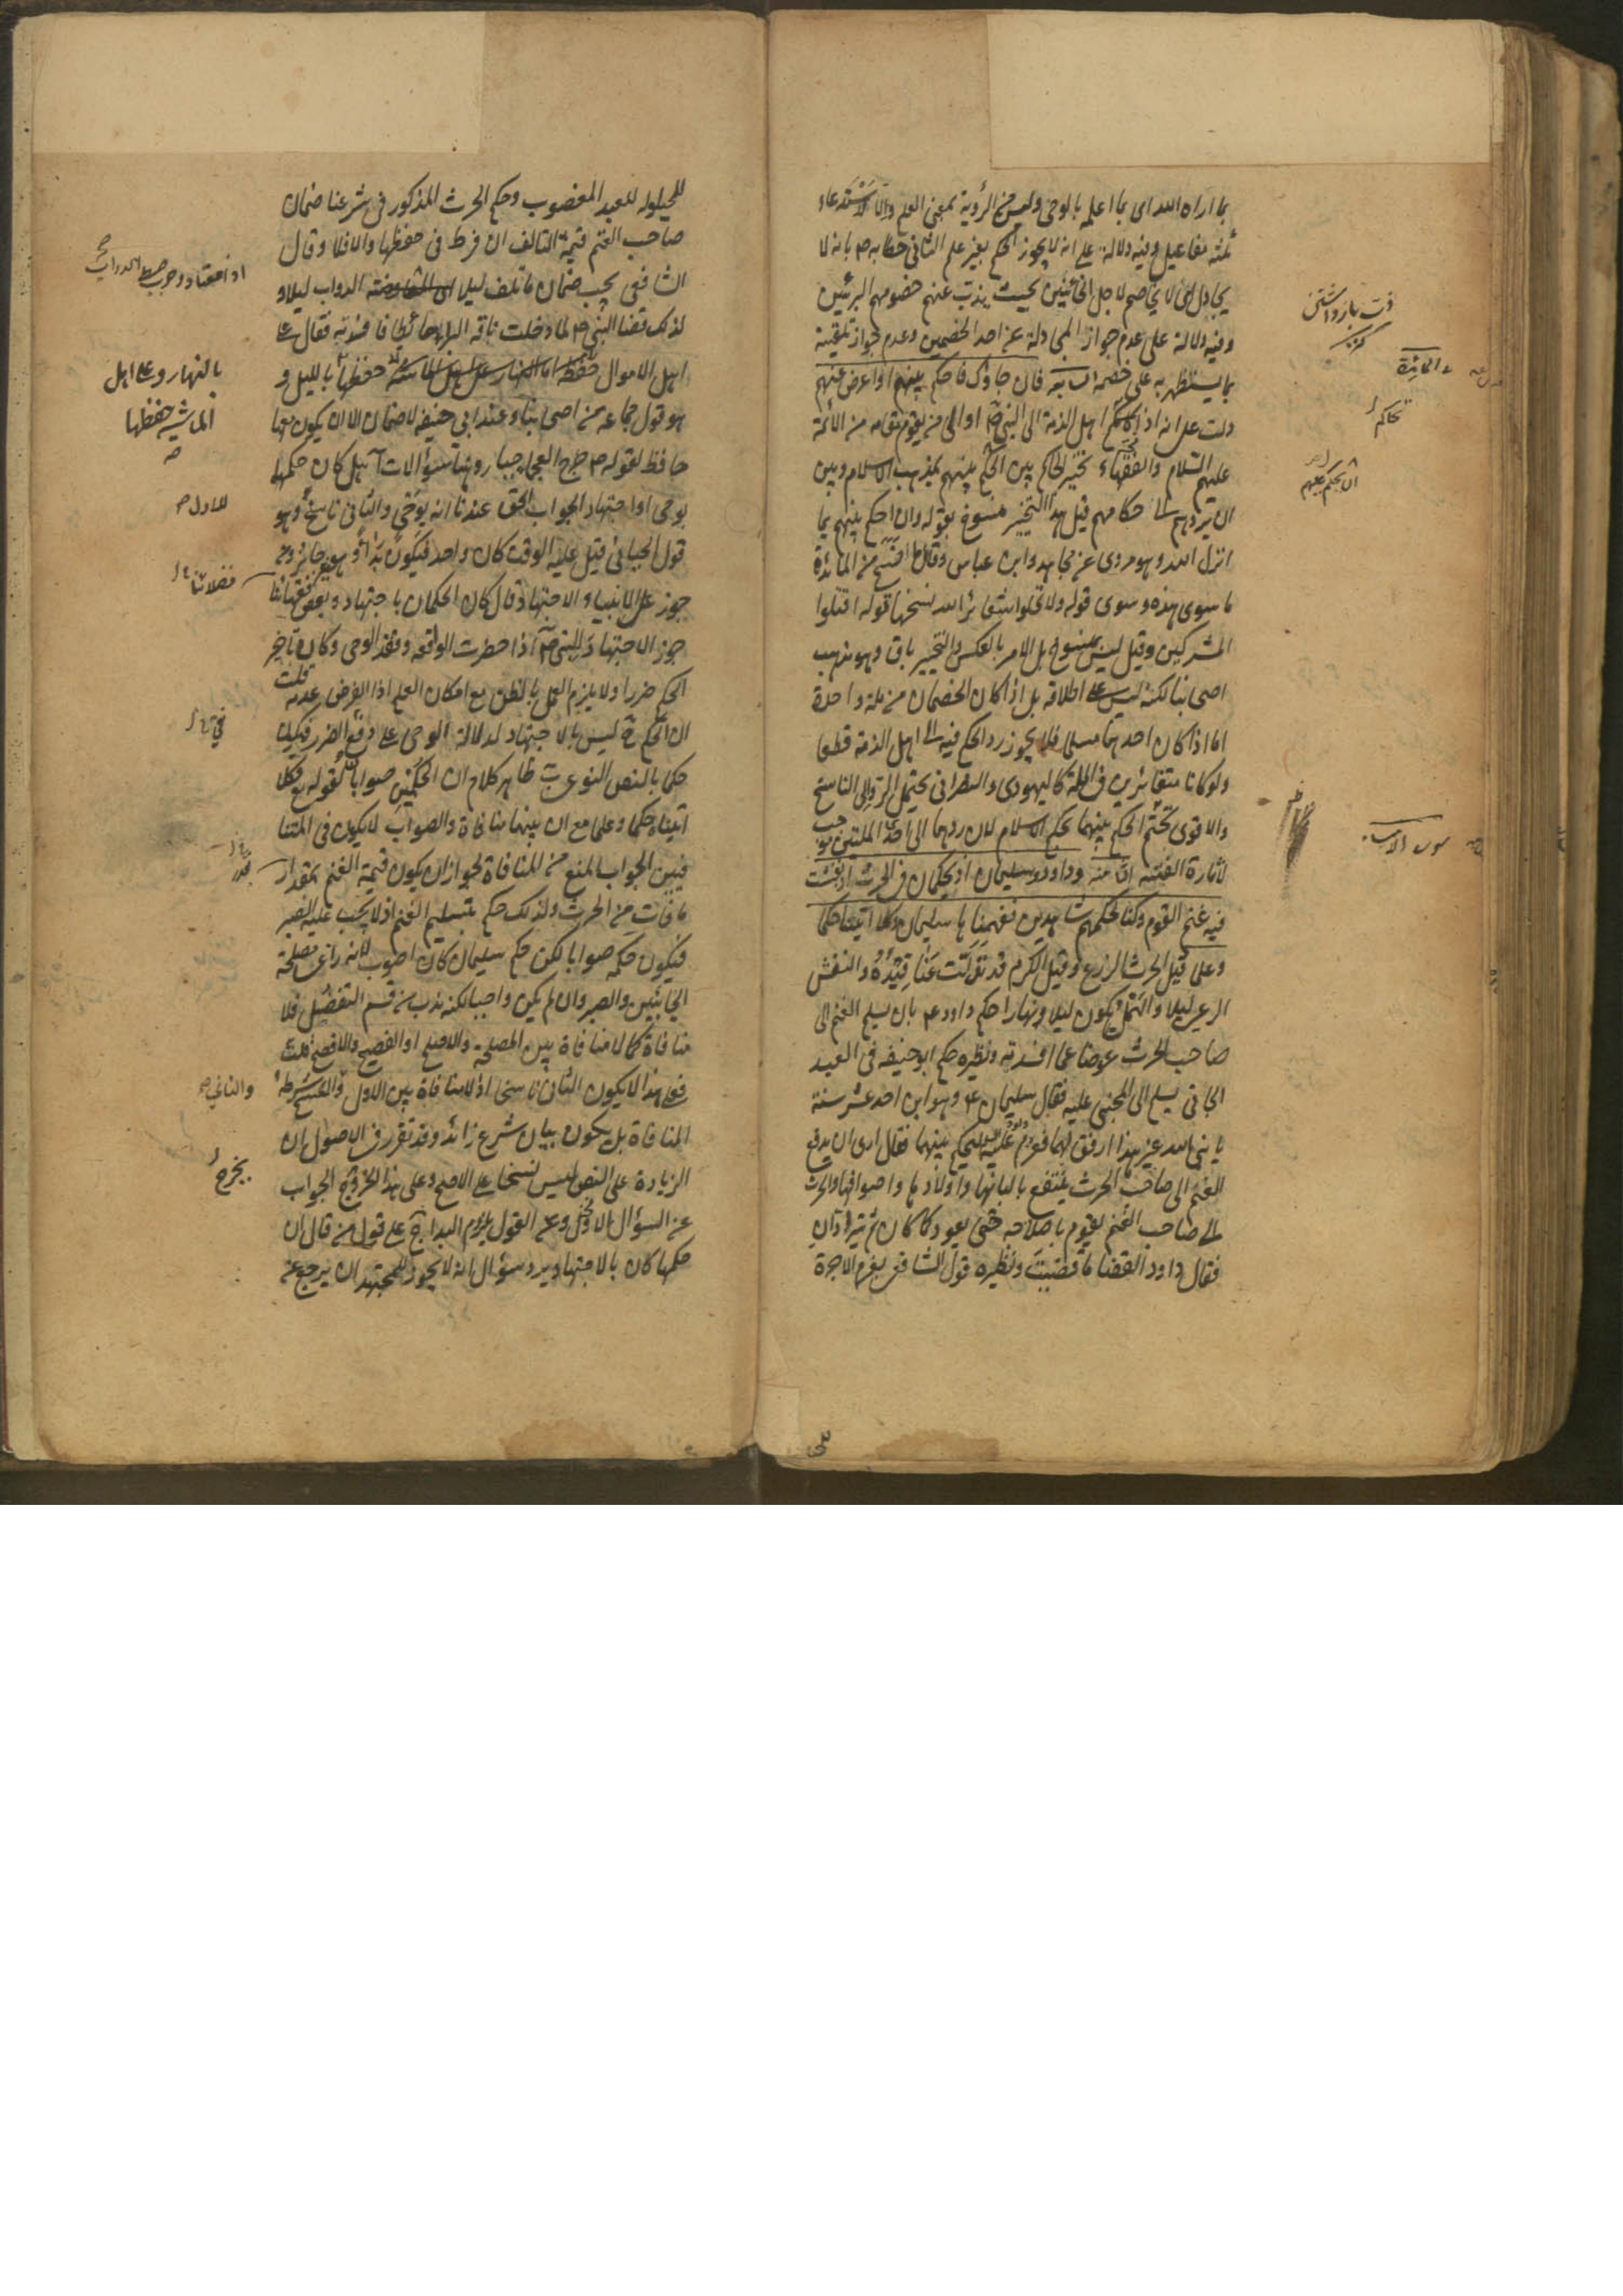 بما اراه الله اى بما اعلمه بالوحى وليس من الرؤية بمعنى العلم والا لاستدعاء
ثلثة مفاعيل وفيه دلالة على انه لا يجوز الحكم بغير علم الثانى خطابه ص بانه لا
يجادل اى لا يخاصم لاجل الخائنين بحيث يذب عنهم خصومهم البرئين
وفيه دلالة على عدم جواز المجادلة عن احد الخصمين وعدم جواز تلقينه
بما يستظهر به على خصمه فان جاؤك فاحكم بينهم او اعرض عنهم
دلت على انه اذا تحاكم اهل الذمة الى النبى ص او الى من يقوم مقامه من الائمة
عليهم السلام والفقهاء تخير الحاكم بين الحكم بينهم بمذهب الاسلام وبين
ان يردهم الى حكامهم قيل هذا التخيير منسوخ بقوله وان احكم بينهم بما
انزل الله وهو مروى عن مجاهد وابن عباس وقال ما نسخ من المائدة
ما سوى هذه وسوى قوله ولا تحلوا شعائر الله نسخها قوله اقتلوا
المشركين وقيل ليس بمنسوخ بل الامر بالعكس والتخيير باق وهو مذهب
اصحابنا لكنه ليس على اطلاقه بل اذا كان الخصمان من ملة واحدة
اما اذا كان احدهما مسلما فلا يجوز رد الحكم فيه الى اهل الذمة قطعا
ولو كانا متغائرين فى الملة كاليهودى والنصرانى يحتمل الرد الى الناسخ
والاقوى تحتم الحكم بينهما بحكم الاسلام لان ردهما الى احدى الملتين موجب
لاثارة الفتنة وداود وسليمان اذ يحكمان فى الحرث اذ نفشت
فيه غنم القوم وكنا لحكمهم شاهدين ففهمناها سليمان وكلا اتينا حكما
وعلما قيل الحرث الزرع وقيل الكرم قد تدلت عناقيده والنفش
الرعى ليلا والهمل يكون ليلا ونهارا حكم داود ع بان يسلم الغنم الى
صاحب الحرث عوضا عما افسدته ونظيره حكم ابو حنيفه فى العبد
الجانى يسلم الى المجنى عليه فقال سليمان ع وهو ابن احد عشر سنة
يا نبى الله غير هذا ارفق بهما فعزم داود عليه ليحكم بينهما فقال ارى ان يدفع
الغنم الى صاحب الحرث ينتفع بالبانها واولادها واصوافها والحرث
الى صاحب الغنم يقوم باصلاحه حتى يعود كما كان ثم يترادان
فقال داود القضا ما قضيت ونظيره قول الشافعى بغرم الاجرة
تحاكم
ان يحكم بينهم
للحيلوله للعبد المغصوب وحكم الحرث المذكور فى شرعنا ضمان
صاحب الغنم قيمة التالف ان فرط فى حفظها والا فلا وقال
الشافعى يجب ضمان ما تلف ليلا الدواب ليلا و
لذلك قضا النبى ص لما دخلت ناقة البراء حائطا فافسدته فقال على
اهل الاموال حفظها حفظها بالليل و
هو قول جماعه من اصحابنا وعند ابى حنيفه لا ضمان الا ان يكون معها
حافظ لقوله ص جرح العجماء جبار وهنا سؤالات آ هل كان حكمهما
بوحى او اجتهاد الجواب الحق عندنا انه بوحى والثانى ناسخ وهو
قول الجبائى قيل عليه الوقت كان واحد فيكون بداء وهو غير جائز ومن
جوز على الانبياء الاجتهاد قال كان الحكمان باجتهاد وبعض فقهائنا
جوز الاجتهاد للنبى ص اذا حضرت الواقعه وفقد الوحى وكان تاخير
الحكم ضررا ولا يلزم العمل بالظن مع امكان العلم اذا الفرض عدمه قلت
ان الحكم ح ليس بالاجتهاد لدلالة الوحى على دفع الضرر فيكون
حكما بالنص النوعى ب ظاهر كلام ان الحكمين صوابا لقوله تع وكلا
اتيناه حكما وعلما مع ان بينهما منافاة والصواب لا يكون فى المتنا
فيين الجواب بالمنع من المنافاة لجواز ان يكون قيمة الغنم بمقدار
ما فات من الحرث ولذلك حكم بتسليم الغنم اذ لا يجب عليه الصبر
فيكون حكمه صوابا لكن حكم سليمان كان اصوب لانه راعى مصلحة
الجانبين والصبر وان لم يكن واجبا لكنه ندب من قسم التفضل فلا
منافاة كما لا منافاة بين المصلحة والاصلح او الفصيح والافصح قلت
فعلى هذا لا يكون الثانى ناسخا اذ لا منافاة بين الاول والنسخ شرطه
المنافاة بل يكون بيان شرع زائد وقد تقرر فى الاصول ان
الزيادة على النص ليس نسخا على الاصح وعلى هذا الجواب
عن السؤال الاول وعلى القول يلزم البداء ج على قول من قال ان
حكمهما كان بالاجتهاد يرد سؤال انه لا يجوز للمجتهد ان يرجع عن
بالنهار وعلى اهل
الماشية حفظها
للاول
والثانى
يخرج